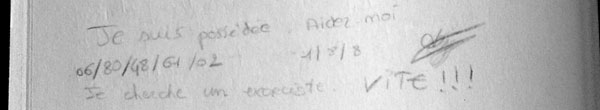 Je suis possédée. Aidez moi
06/80/48/61/02 1/8/8
Je cherche un exorciste. VITE!!!